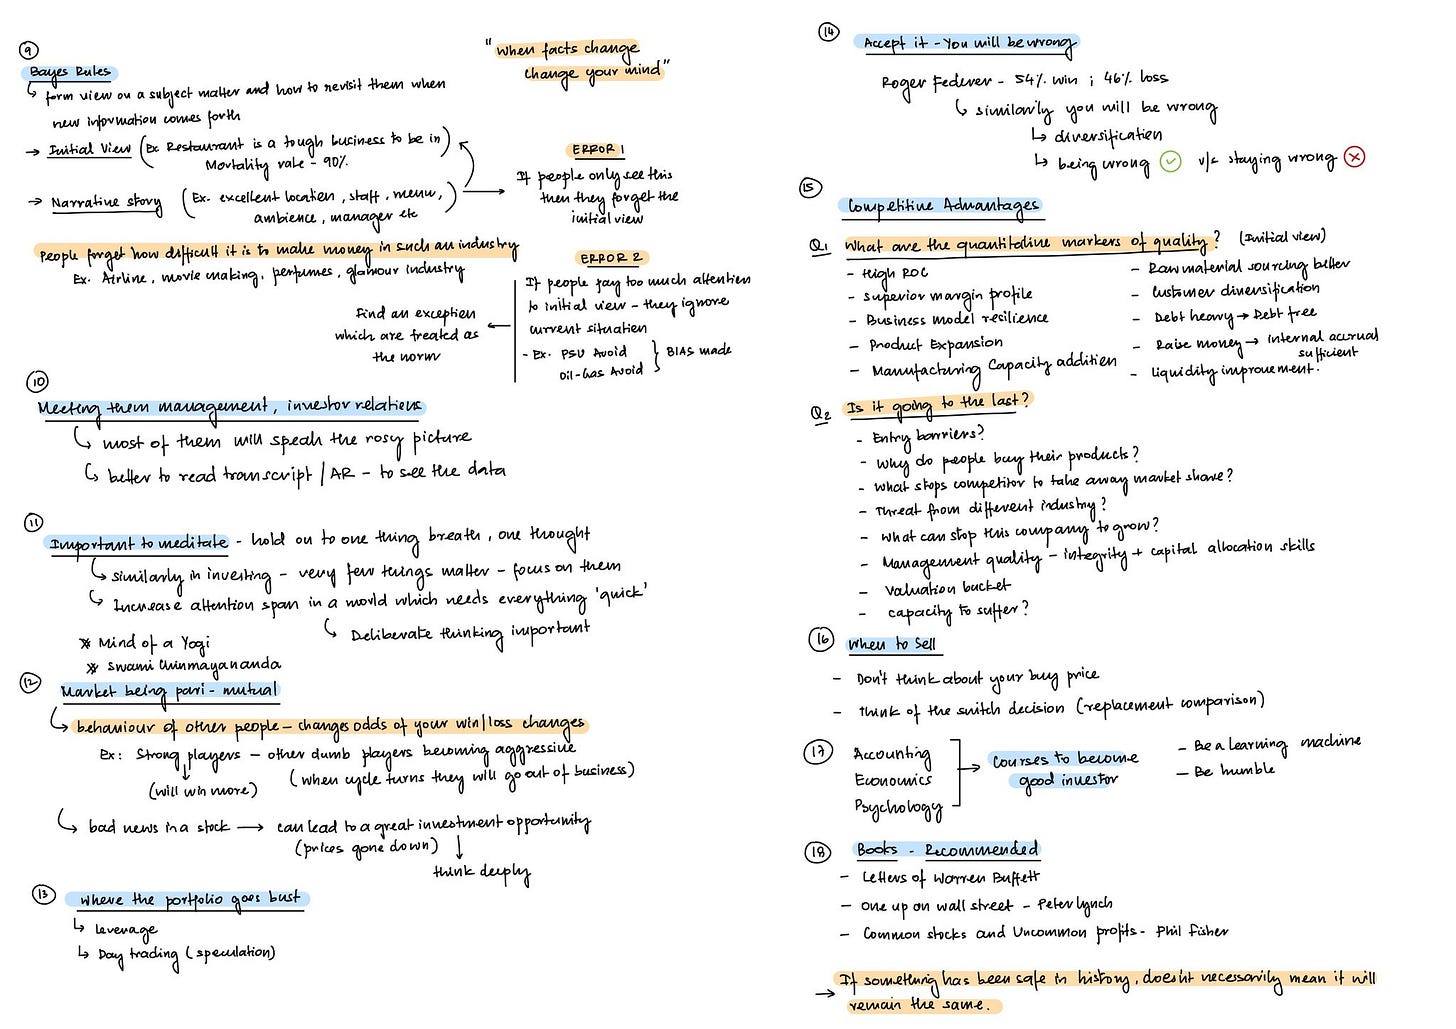 9
Bayes Rules
"When facts change
change your mind"
form view on a subject matter and how to revisit them when
new information comes forth
→ Initial View (Ex Restaurant is a tough business to be in)
Mortality rate - 90%
→ Narrative story (Ex. excellent location, staff, menu,
ambience, manager etc)
ERROR 1
If people only see this
then they forget the
initial view
People forget how difficult it is to make money in such an industry
Ex. Airline, movie making, perfumes, glamour industry
ERROR 2
If people pay too much attention
to initial view - they ignore
current situation
- Ex. PSU Avoid
Oil-Gas Avoid } BIAS made
Find an exception
which are treated as
the norm
10
Meeting them management, investor relations
most of them will speak the rosy picture
better to read transcript / AR - to see the data
11
Important to meditate - hold on to one thing breath, one thought
similarly in investing - very few things matter - focus on them
Increase attention span in a world which needs everything 'quick'
Deliberate thinking important
* Mind of a Yogi
* Swami Chinmayananda
12
Market being pari-mutual
behaviour of other people - changes odds of your win/loss changes
Ex: Strong players - other dumb players becoming aggressive
(will win more) (when cycle turns they will go out of business)
bad news in a stock → can lead to a great investment opportunity
(prices gone down)
think deeply
13
Where the portfolio goes bust
Leverage
Day trading (speculation)
14
Accept it - You will be wrong
Roger Federer - 54% win ; 46% loss
similarily you will be wrong
diversification
being wrong ✓ v/s staying wrong ✗
15
Competitive Advantages
Q1 What are the quantitative markers of quality? (Initial view)
- High ROC
- Superior margin profile
- Business model resilience
- Product Expansion
- Manufacturing Capacity addition
- Raw material sourcing better
- Customer diversification
- Debt heavy → Debt free
- Raise money → internal accrual
sufficient
- Liquidity improvement.
Q2 Is it going to the last?
- Entry barriers?
- Why do people buy their products?
- What stops competitor to take away market share?
- Threat from different industry?
- What can stop this company to grow?
- Management quality - integrity + capital allocation skills
- Valuation bucket
- capacity to suffer?
16
When to Sell
- Don't think about your buy price
- Think of the switch decision (replacement comparison)
17
Accounting
Economics
Psychology
→ Courses to become
good investor
- Be a learning machine
- Be humble
18
Books - Recommended
- Letters of Warren Buffett
- One up on wall street - Peter Lynch
- Common stocks and Uncommon profits - Phil Fisher
→ If something has been safe in history, doesn't necessarily mean it will
remain the same.